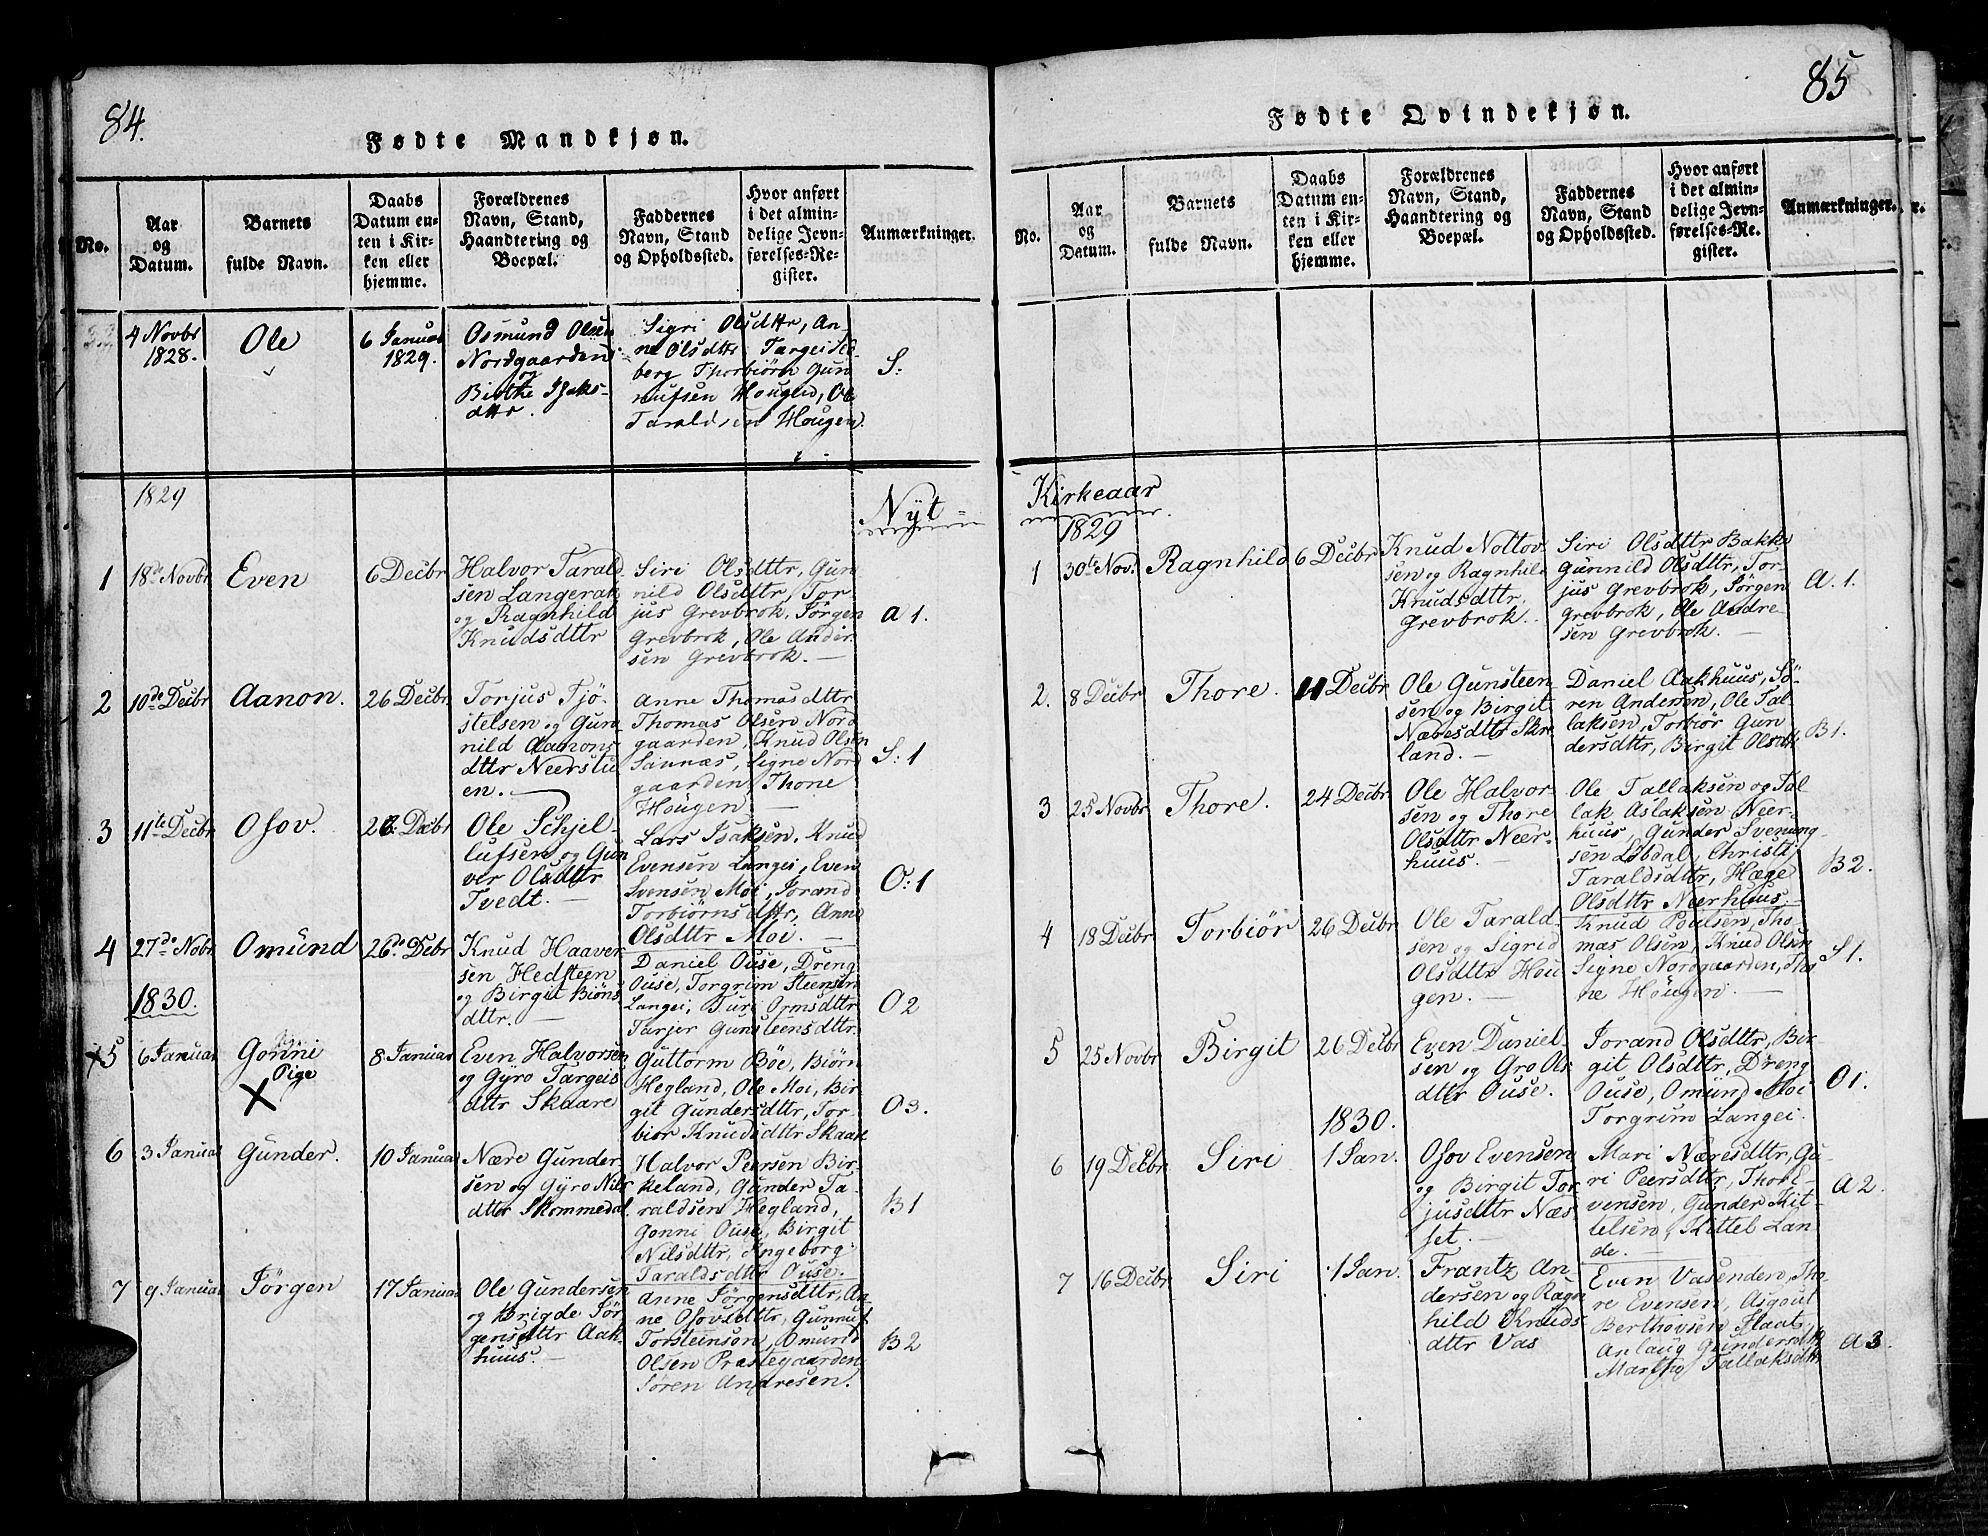 84.
Fødte Mandkjøn.
No.
Aar
og
Datum.
Barnets
fulde Navn.
Daabs
Datum en-
ten i Kir-
ken eller
hjemme.
Forældrenes
Navn, Stand,
Haandtering og
Boepæl.
Faddernes
Navn, Stand
og Opholdssted.
Hvor anført
i det almin-
delige Jevn-
førelses-Re-
gister.
Anmærkninger.
4 Novbr
1828.
Ole
6 Januar
1829.
Osmund Olsen
Nordgaarden
og
Birthe Isaks-
dttr.
Sigri Olsdttr, An-
ne Olsdttr Targeised-
berg Thorbiørn Gun
nufsen Houglid, Ole
Taraldsen Hougen.
S:
1829
Nÿt
1
18de Novbr
Even
6 Decbr
Halvor Tarald-
sen Langerak
og Ragnhild
Knudsdttr
Siri Olsdttr, Gun
nild Olsdttr, Tor-
jus Grevbrok, Jörgen
Grevbrok, Ole Ander-
sen Grevbrok. —
A 1.
2
10de Decbr
Aanon.
26 Decbr
Torjus Tjö-
stelsen og Gun-
nild Aanons-
dttr Neerstu
en. —
Anne Thomasdttr
Thomas Olsen Nord
gaarden, Knud Olsen
Saunæs, Signe Nord
gaarden, Thone
Hougen —
S: 1
3
11te Decbr
Osov.
26 Decbr
Ole Schjel-
lufsen og Gun
ver Olsdttr
Tvedt. —
Lars Isaksen, Knud
Evensen Langei, Even
Svensen Moi, Jorand
Torbiörnsdttr, Anne
Olsdttr Moi. —
O: 1
4
27de Nobr
Omünd
26de Debr
Knud Haaver-
sen Hedsteen
og Birgit Biöns
dttr. —
Daniel Ouse, Dreng
Ouse, Torgrim Steensen
Langei, Turi Ormsdttr
Tarjer Gunsteensdttr.
O 2
1830.
x5
6 Januar
Gonni
Pige
X
8 Januar
Even Halvorsen
og Gÿro Targeis
dttr Skaare
Guttorm Böe, Biörn
Hegland, Ole Moi, Bir
git Gundersdttr, Tor-
bior Knudsdttr Skaare
O 3.
6
3 Januar
Gunder.
10 Januar
Nære Gunder
sen og Gÿro Nils
dttr Skommedal
Halvor Peersen Bir-
keland, Gunder Ta-
raldsen Hegland,
Gonni Ouse, Birgit
Nilsdttr, Ingeborg
Taraldsdttr Ouse.
B 1
7
9 Januar
Jörgen
17 Januar
Ole Gundersen
og Brigde Jör
gensdttr Aak
huus. —
Anne Jörgensdttr, An
ne Osovsdttr, Gunnuf
Torsteinson, Omund
Olsen Præstegaarden
Sören Andresen.
B 2
85
Fødte Qvindekjøn.
No.
Aar
og
Datum.
Barnets
fulde Navn.
Daabs
Datum en-
ten i Kir-
ken eller
hjemme.
Forældrenes
Navn, Stand,
Haandtering og
Boepæl.
Faddernes
Navn, Stand
og Opholdssted.
Hvor anført
i det almin-
delige Jevn-
førelses-Re-
gister.
Anmærkninger.
Kirkeaar
1829
1
30te Nov.
Ragnhild
6 Decbr
Knud Nottov
sen og Ragnhild
Knudsdttr.
Grevbrok.
Siri Olsdttr Bakke
Günnild Olsdttr, Tor-
jus Grevbrok, Jörgen
Grevbrok, Ole Andre-
sen Grevbrok. —
A. 1.
2.
8 Decbr
Thore.
11 Decbr
Ole Gunsteen-
sen og Birgit
Næresdttr Skre
land. —
Daniel Aakhuus, Sö-
ren Andersen, Ole Tal-
laksen, Torbiör Gun
dersdttr, Birgit Olsdttr
B 1.
3
25 Novbr
Thore.
24 Decbr
Ole Halvor
sen og Thore
Olsdttr Neer-
huus. —
Ole Tallaksen og Tal
lak Aslaksen Neer-
huus, Gunder Svenung-
sen Löbdal, Christi
Taraldsdttr, Hæge
Olsdttr Neerhuus. —
B 2.
4
18 Decbr
Torbiör
26 Decbr
Ole Tarald-
sen og Sigrid
Olsdttr Hou
gen. —
Knud Poulsen, Tho-
mas Olsen, Knud Olsen
Signe Nordgaarden, Tho
ne Hougen. —
S 1.
5
25 Novbr
Birgit
26 Decbr
Even Daniel-
sen og Gro Ols
dttr Ouse.
Jorand Olsdttr, Bir-
git Olsdttr, Dreng
Ouse, Omund Moi
Torgrim Langei.
O 1.
1830.
6
19 Decbr
Siri
1 Jan.
Osov Evensen
og Birgit Tor
jusdttr Næs
set. —
Mari Næresdttr, Gu-
ri Peersdttr, Thor E-
vensen, Gunder Kit-
telsen, Kittel Lan-
de. —
A 2.
7
16 Decbr
Siri
1 Jan.
Frantz An
dersen og Ragn
hild Knuds
dttr Vas
Even Vasenden, Tho-
re Evensen, Asgout
Berthovsen Flaat,
Anlaug Gundersdttr
Marthe Tallaksdttr
A 3.